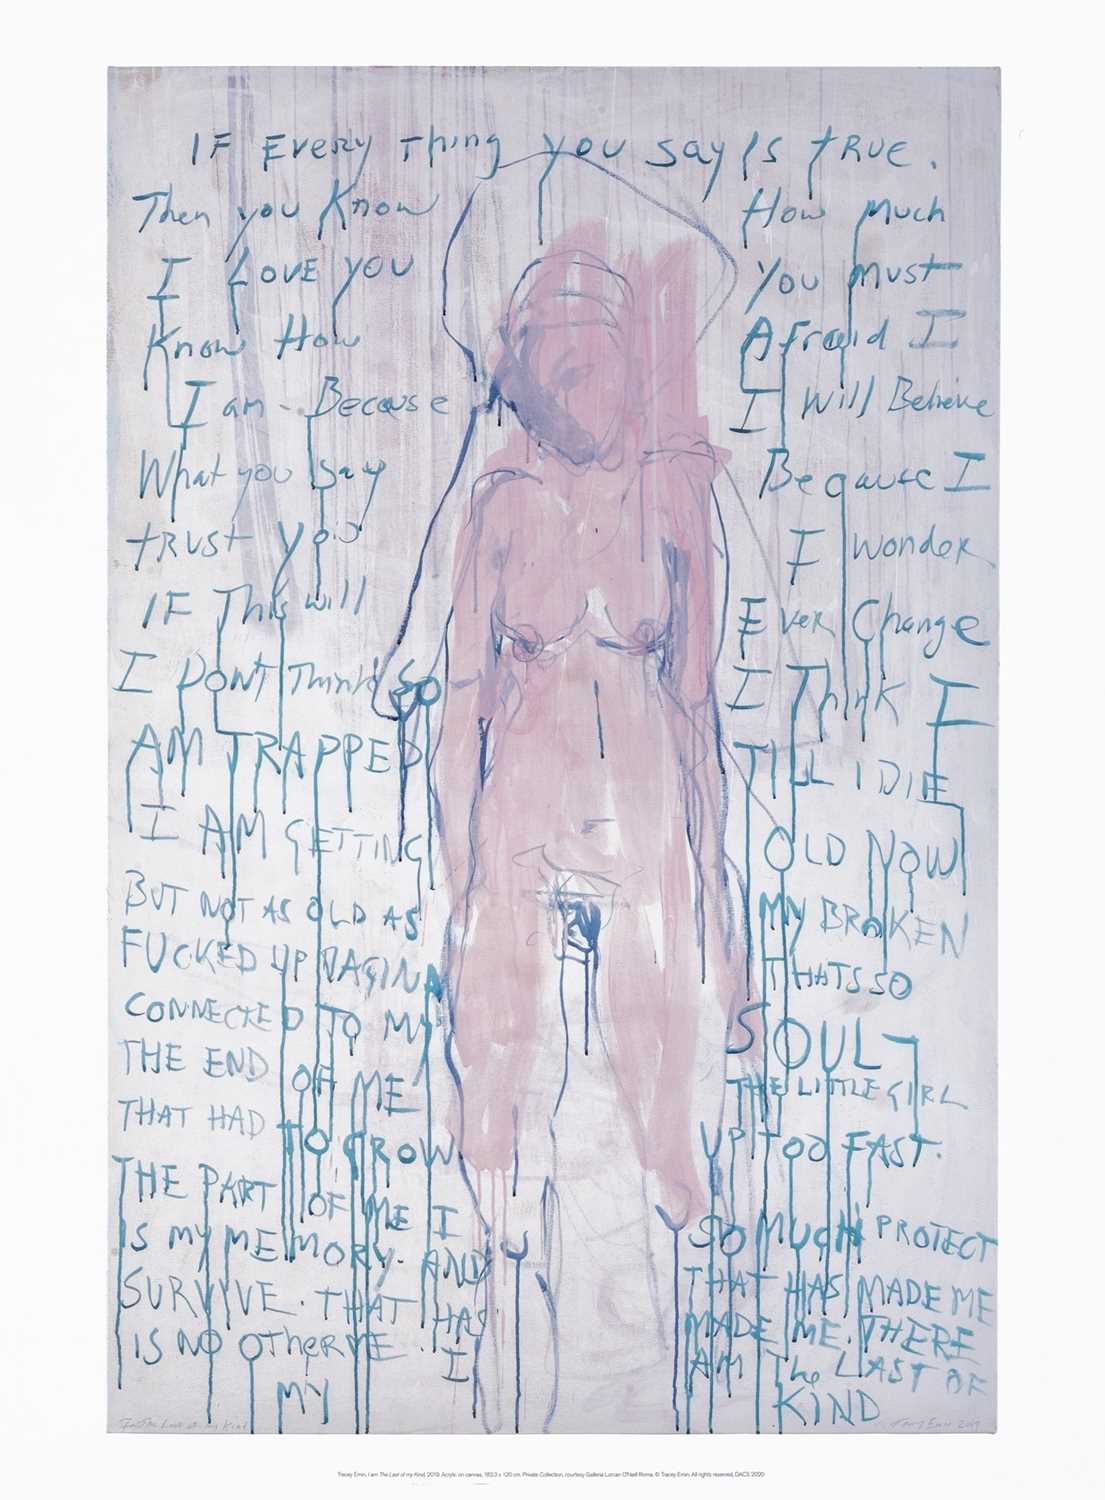 IF EVERY Thing you say Is TRUE.
Then you Know How Much
I LOVE YOU You Must
Know How Afraid I
I am - Because I Will Believe
What you say Because I
TRUST you I Wonder
IF This will Ever Change
I DON'T Think So I Think I
AM TRAPPED TILL I DIE
I AM GETTING OLD NOW
BUT NOT AS OLD AS MY BROKEN
FUCKED UP VAGINA THATS SO
CONNECTED TO MY SOUL
THE END OF ME THE LITTLE GIRL
THAT HAD TO GROW UP TOO FAST.
THE PART OF ME I SO MUCH PROTECT
IS MY MEMORY. AND THAT HAS MADE ME
SURVIVE. THAT HAS MADE ME. THERE
IS NO OTHER ME. I AM The LAST OF
MY KIND
I am The Last of my Kind Tracey Emin 2019
Tracey Emin, I am The Last of my Kind, 2019. Acrylic on canvas, 182.3 x 120 cm. Private Collection, courtesy Galleria Lorcan O'Neill Roma. © Tracey Emin. All rights reserved, DACS 2020